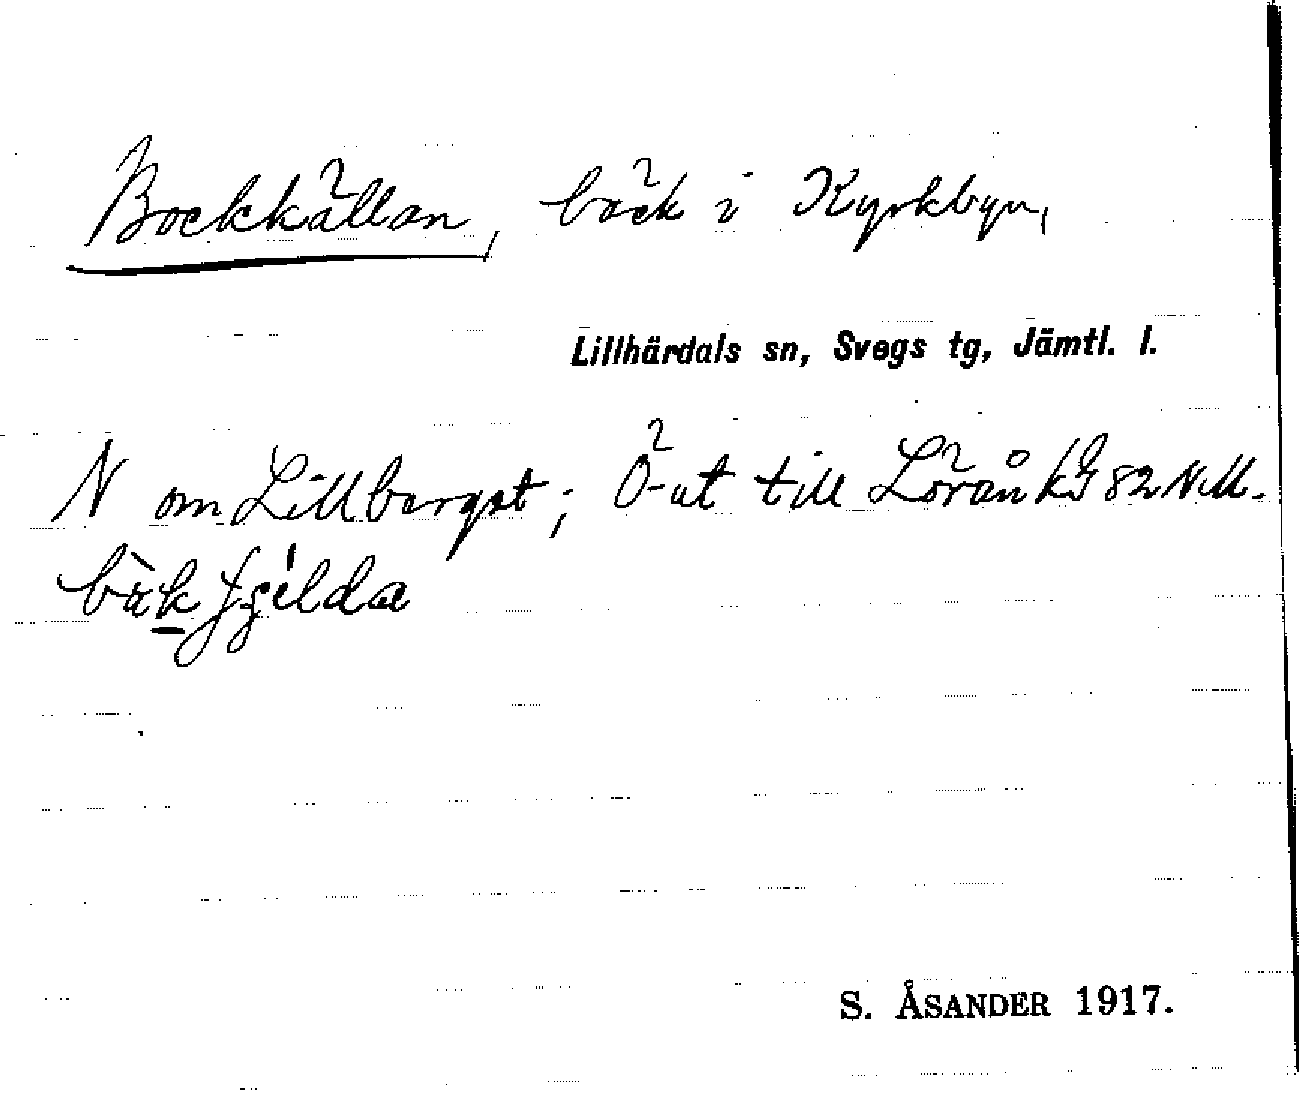 Bockkällan, bäck i Kyrkbyn,
Lillhärdals sn, Svegs tg, Jämtl. l.
N om Lillberget; Ö-ut till Lörån 82 N.M.
S. ÅSANDER 1917.